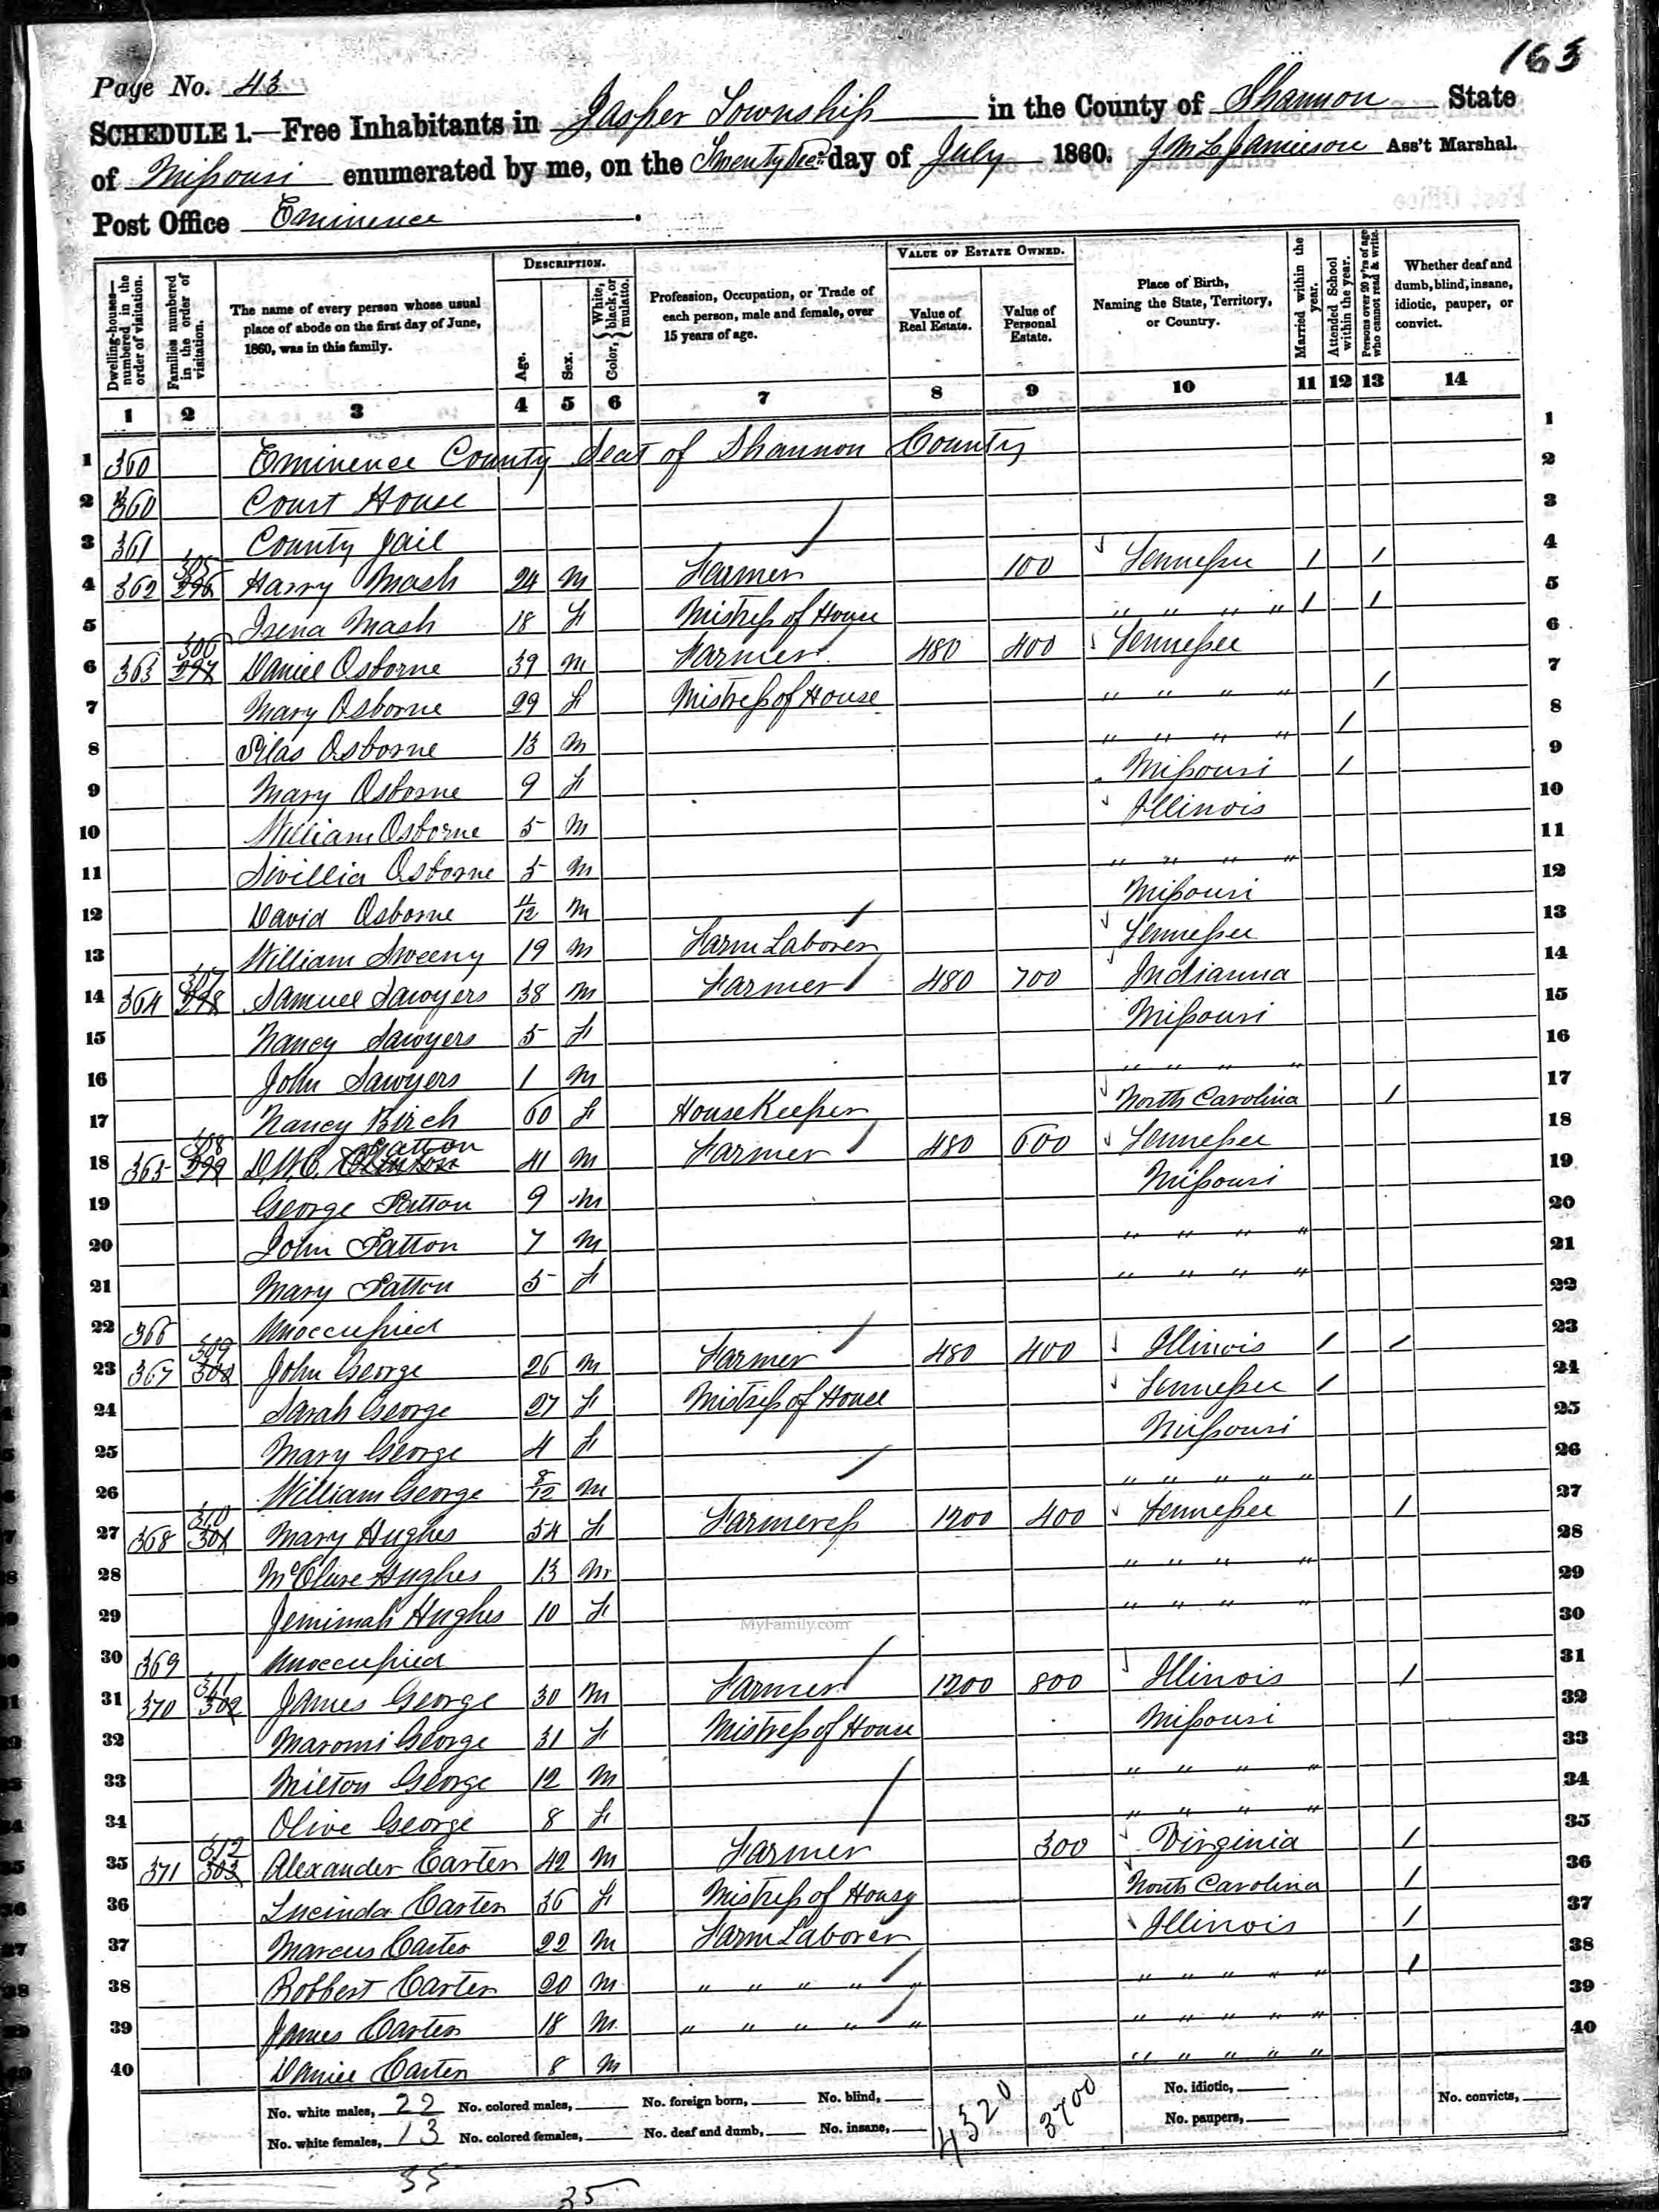 163
Page No. 43
SCHEDULE 1.—Free Inhabitants in Jasper Township in the County of Shannon State
of Missouri enumerated by me, on the Twenty Sec day of July 1860. Jamieson Ass't Marshal.
Post Office Eminence.
DESCRIPTION. VALUE OF ESTATE OWNED.
Dwelling-houses—numbered in the order of visitation.
Families numbered in the order of visitation.
The name of every person whose usual place of abode on the first day of June, 1860, was in this family.
Age.
Sex.
Color, { White, black, or mulatto.
Profession, Occupation, or Trade of each person, male and female, over 15 years of age.
Value of Real Estate.
Value of Personal Estate.
Place of Birth, Naming the State, Territory, or Country.
Married within the year.
Attended School within the year.
Persons over 20 y'rs of age who cannot read & write.
Whether deaf and dumb, blind, insane, idiotic, pauper, or convict.
1 2 3 4 5 6 7 8 9 10 11 12 13 14
1 360 Eminence County Seat of Shannon County 1
2 360 Court House 2
3 361 County Jail 3
4 362 305 296 Harry Mash 24 M Farmer 100 Tennessee 1 1 4
5 Isena Mash 18 F Mistress of House " " " " 1 1 5
6 363 306 297 Daniel Osborne 39 M Farmer 480 400 Tennessee 6
7 Mary Osborne 29 F Mistress of House " " " " 1 7
8 Silas Osborne 13 M " " " " 1 8
9 Mary Osborne 9 F Missouri 1 9
10 William Osborne 5 M Illinois 10
11 Sivillia Osborne 5 M " " " " 11
12 David Osborne M Missouri 12
13 William Sweeny 19 M Farm Laborer Tennessee 13
14 364 307 298 Samuel Sawyers 38 M Farmer 480 700 Indianna 14
15 Nancy Sawyers 5 F Missouri 15
16 John Sawyers 1 M " " " " 16
17 Nancy Birch 60 F House Keeper North Carolina 1 17
18 365 308 299 D.W.C. Patton 41 M Farmer 480 600 Tennessee 18
19 George Patton 9 M Missouri 19
20 John Patton 7 M " " " " 20
21 Mary Patton 5 F " " " " 21
22 366 Unoccupied 22
23 367 309 300 John George 26 M Farmer 480 400 Illinois 1 1 23
24 Sarah George 27 F Mistress of House Tennessee 1 24
25 Mary George 4 F Missouri 25
26 William George 8/12 M " " " " " 26
27 368 310 301 Mary Hughes 54 F Farmeress 1200 400 Tennessee 1 27
28 McClure Hughes 13 M " " " " 28
29 Jemimah Hughes 10 F " " " " 29
MyFamily.com
30 369 Unoccupied 30
31 370 311 302 James George 30 M Farmer 1200 800 Illinois 1 31
32 Maromi George 31 F Mistress of House Missouri 32
33 Milton George 12 M " " " " 33
34 Olive George 8 F " " " " 34
35 371 312 303 Alexander Carter 42 M Farmer 300 Virginia 1 35
36 Lucinda Carter 36 F Mistress of House North Carolina 1 36
37 Marcus Carter 22 M Farm Laborer Illinois 1 37
38 Robbert Carter 20 M " " " " " " " " " " 1 38
39 James Carter 18 M " " " " " " " " " " 39
40 Daniel Carter 8 M " " " " " 40
No. white males, 22 No. colored males, No. foreign born, No. blind, 4320 3700 No. idiotic, No. convicts,
No. white females, 13 No. colored females, No. deaf and dumb, No. insane, No. paupers,
35 35